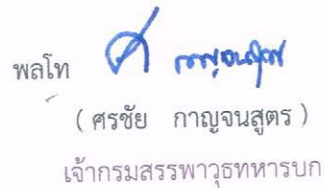 พลโท
( ศรชัย กาญจนสูตร )
เจ้ากรมสรรพาวุธทหารบก